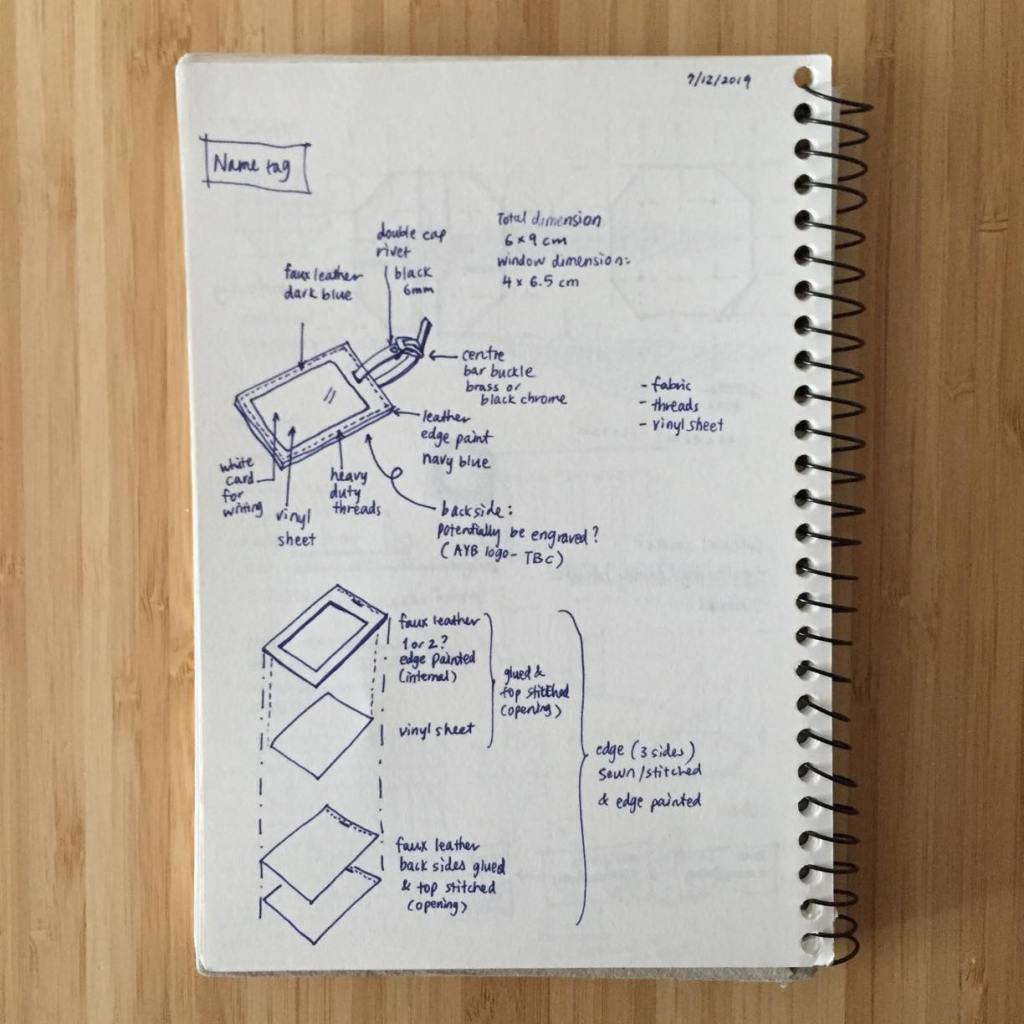 7/12/2019
Name tag
Total dimension
6 x 9 cm
window dimension:
4 x 6.5 cm
double cap
rivet
black
6mm
faux leather
dark blue
centre
bar buckle
brass or
black chrome
- fabric
- threads
- vinyl sheet
leather
edge paint
navy blue
white
card
for
writing
vinyl
sheet
heavy
duty
threads
backside:
potentially be engraved?
(AYB logo - TBC)
faux leather
1 or 2?
edge painted
(internal)
vinyl sheet
glued &
top stitched
(opening)
edge (3 sides)
sewn/stitched
& edge painted
faux leather
back sides glued
& top stitched
(opening)